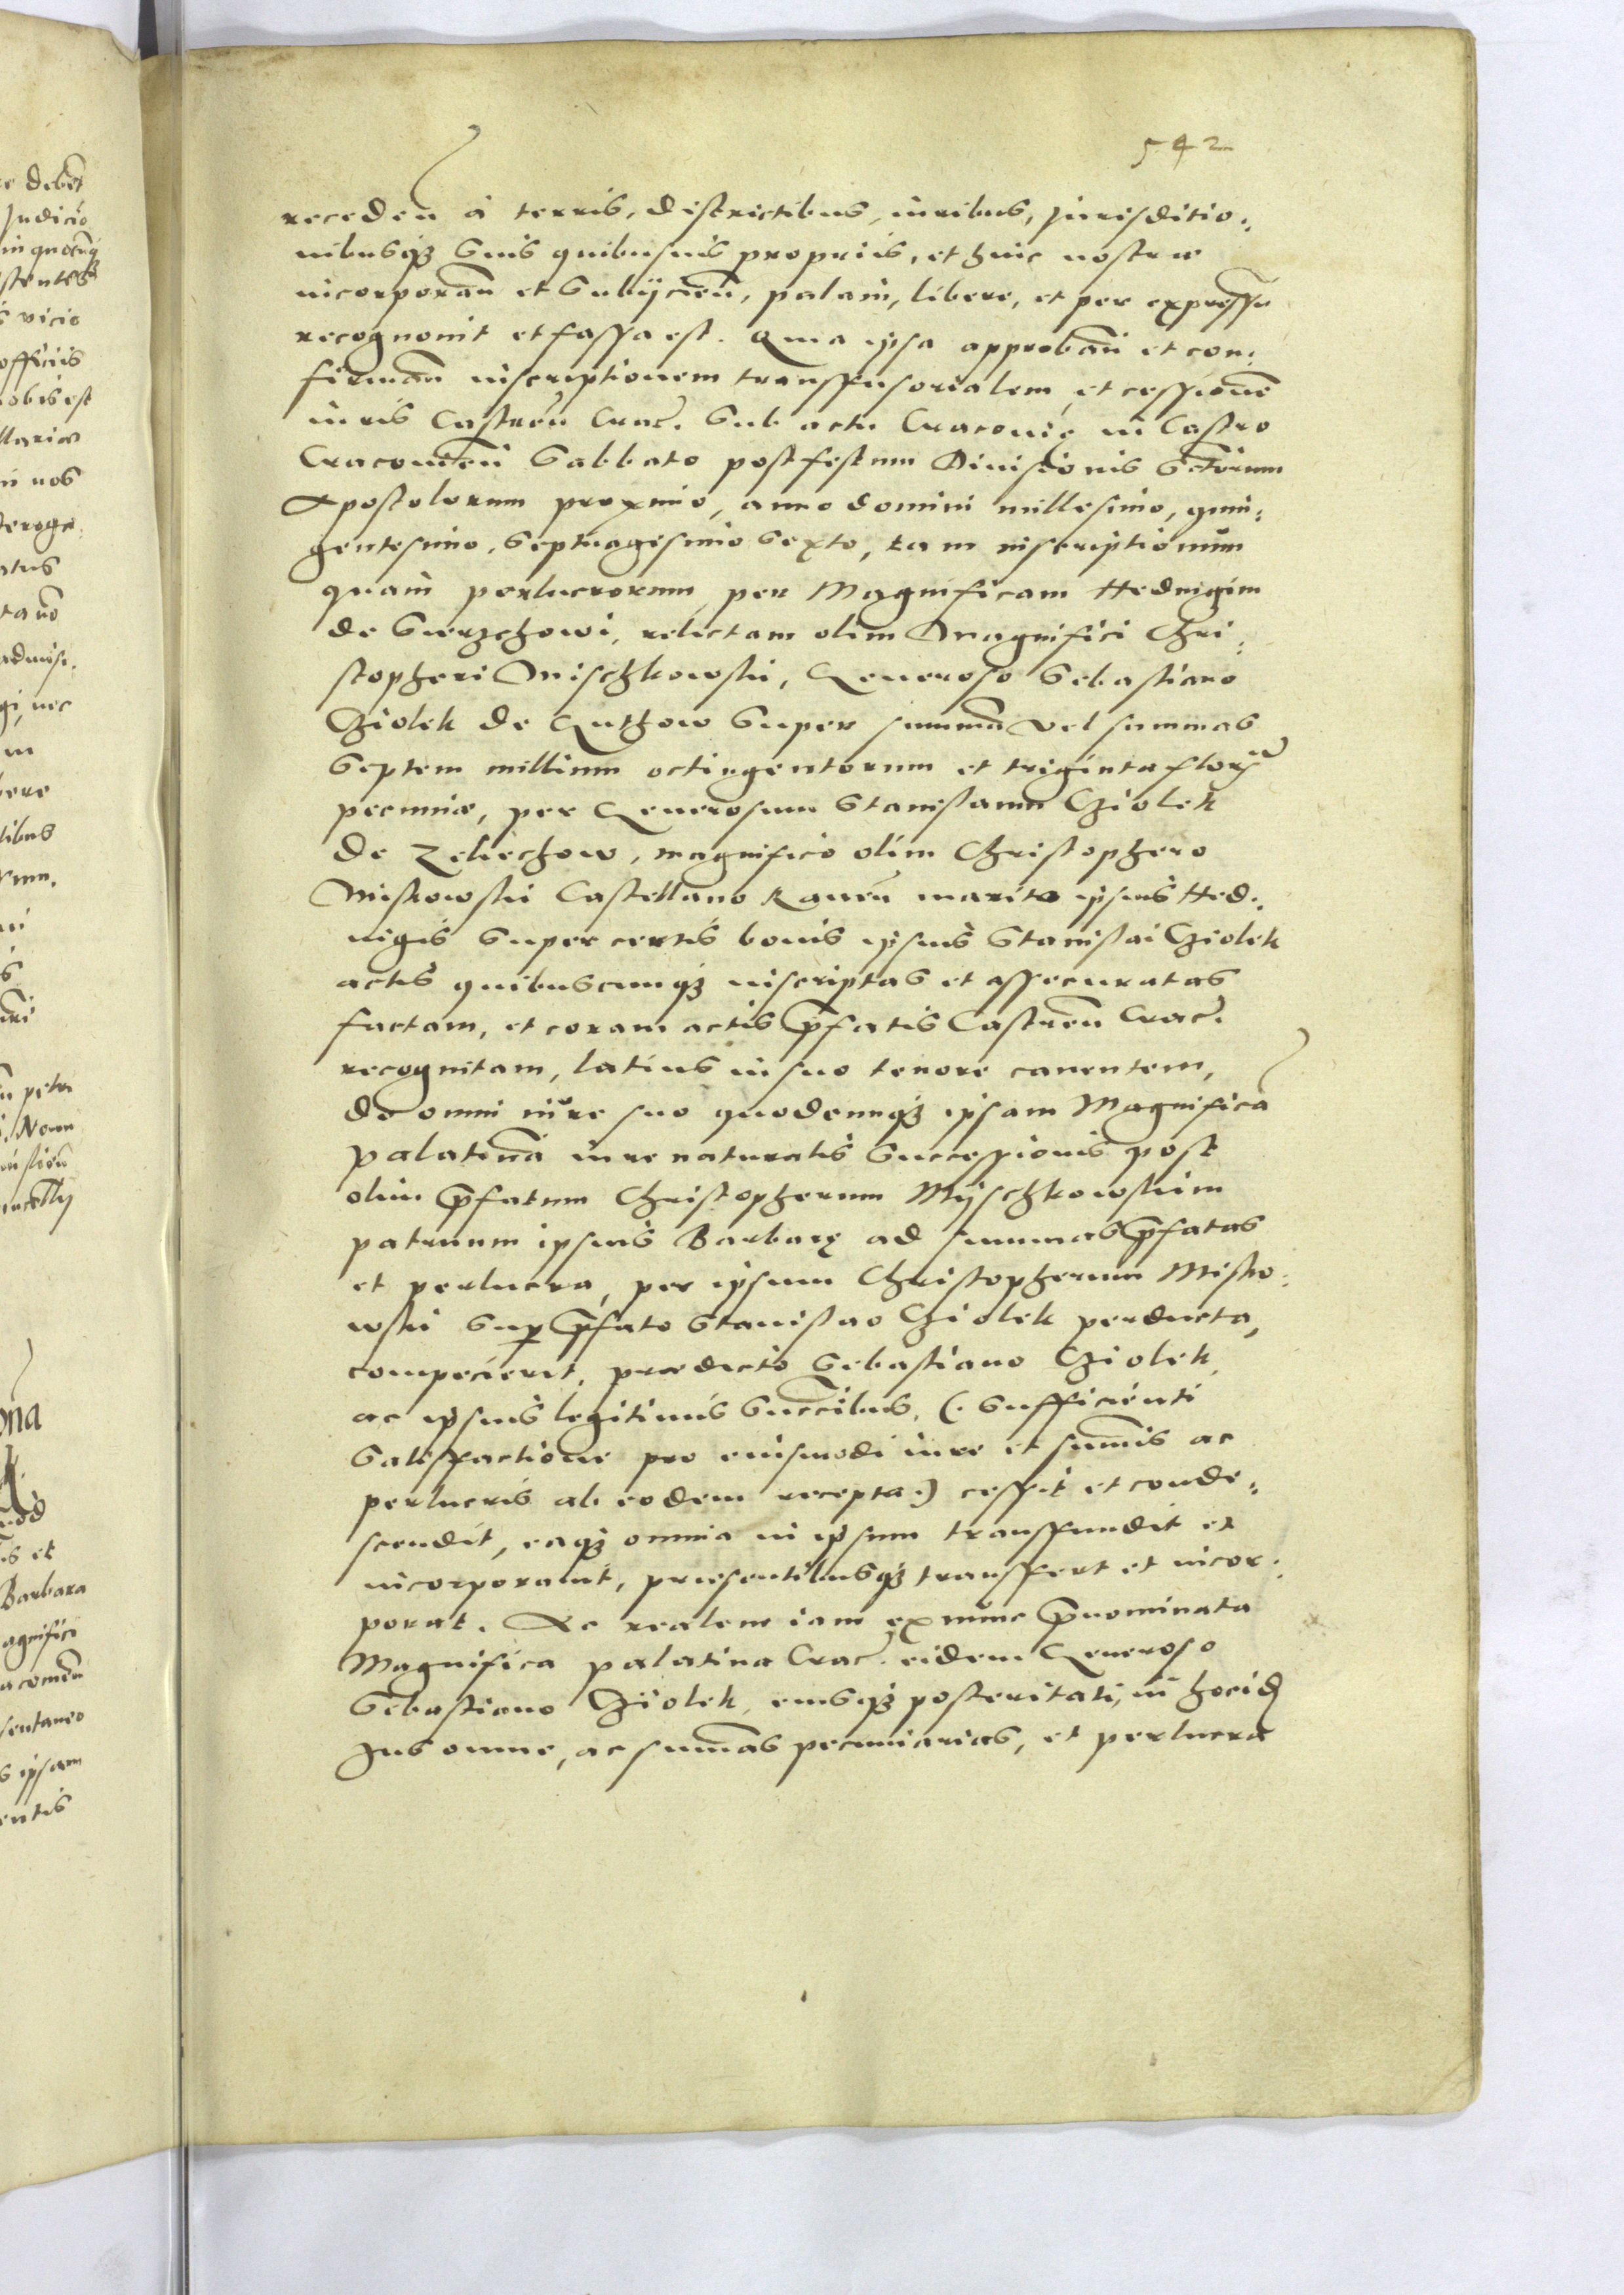 542
receden̄ à terris, districtibus, iuribus, Jurisditio:
nibusq́ꝫ suis quibusuis proprijs, et huic nostræ
incorporan̄ et Subijcien̄, palam, libere, et per expressu
recognouit et fassa est. Quia ipsa approban̄ et con:
firman̄ inscriptionem transfusorialem, et cessionē
iuris Castren̄ Crac̄. Sub actu Cracouię in Castro
Cracouien̄ Sabbato post festum Diuisionis Sctōrum
Apostolorum proximo, anno domini millesimo, quin:
gentesimo, Septuagesimo Sexto, tam inscriptionum
quam perlucrorum per Magnificam Hedwigim
de Sierzchowi, relictam olim Magnifici Chri:
stopheri Mischkowski, Generoso Sebastiano
Cziolek de Zuthow Super summā vel summas
Septem millium octingentorum et triginta floren̄
pecuniæ, per Generosum Stanislaum Cziolek
de Zeliechow, magnifico olim Christophero
Miskowski Castellano Rauen̄ marito ipsius Hed:
uigis Super certis bonis ipsius Stanislai Cziolek
actis quibuscunq́ꝫ inscriptas et assecuratas
factam, et coram actis p̄fatis Castren̄ Crac̄.
recognitam, latius in suo tenore canentem,
de omni iure suo quodcunq́ꝫ ipsam Magnificā
Palatinā iure naturalis Successionis post
olim p̄fatum Christopherum Myschkowskim
patruum ipsius Barbarę ad summas p̄fatas
et perlucra, per ipsum Christopherum Misko:
wski Suꝑ p̄fato Stanislao Cziolek perducta,
competierit, prædicto Sebastiano Cziolek,
ac ipsius legitimis Succ̄ibus, (: Sufficienti
Satisfactione pro eiusmodi iure et sum̄is ac
perlucris ab eodem recepta :) cessit et conde:
scendit, eaq́ꝫ omnia in ipsum transfundit et
incorporauit, præsentibusq́ꝫ transfert et incor:
porat. Ac realem iam ex nunc p̄nominata
Magnifica Palatina Crac̄. eidem Generoso
Sebastiano Cziolek, eiusq́ꝫ posteritati, in hocid
Jus omne, ac sum̄as pecuniarias, et perlucra